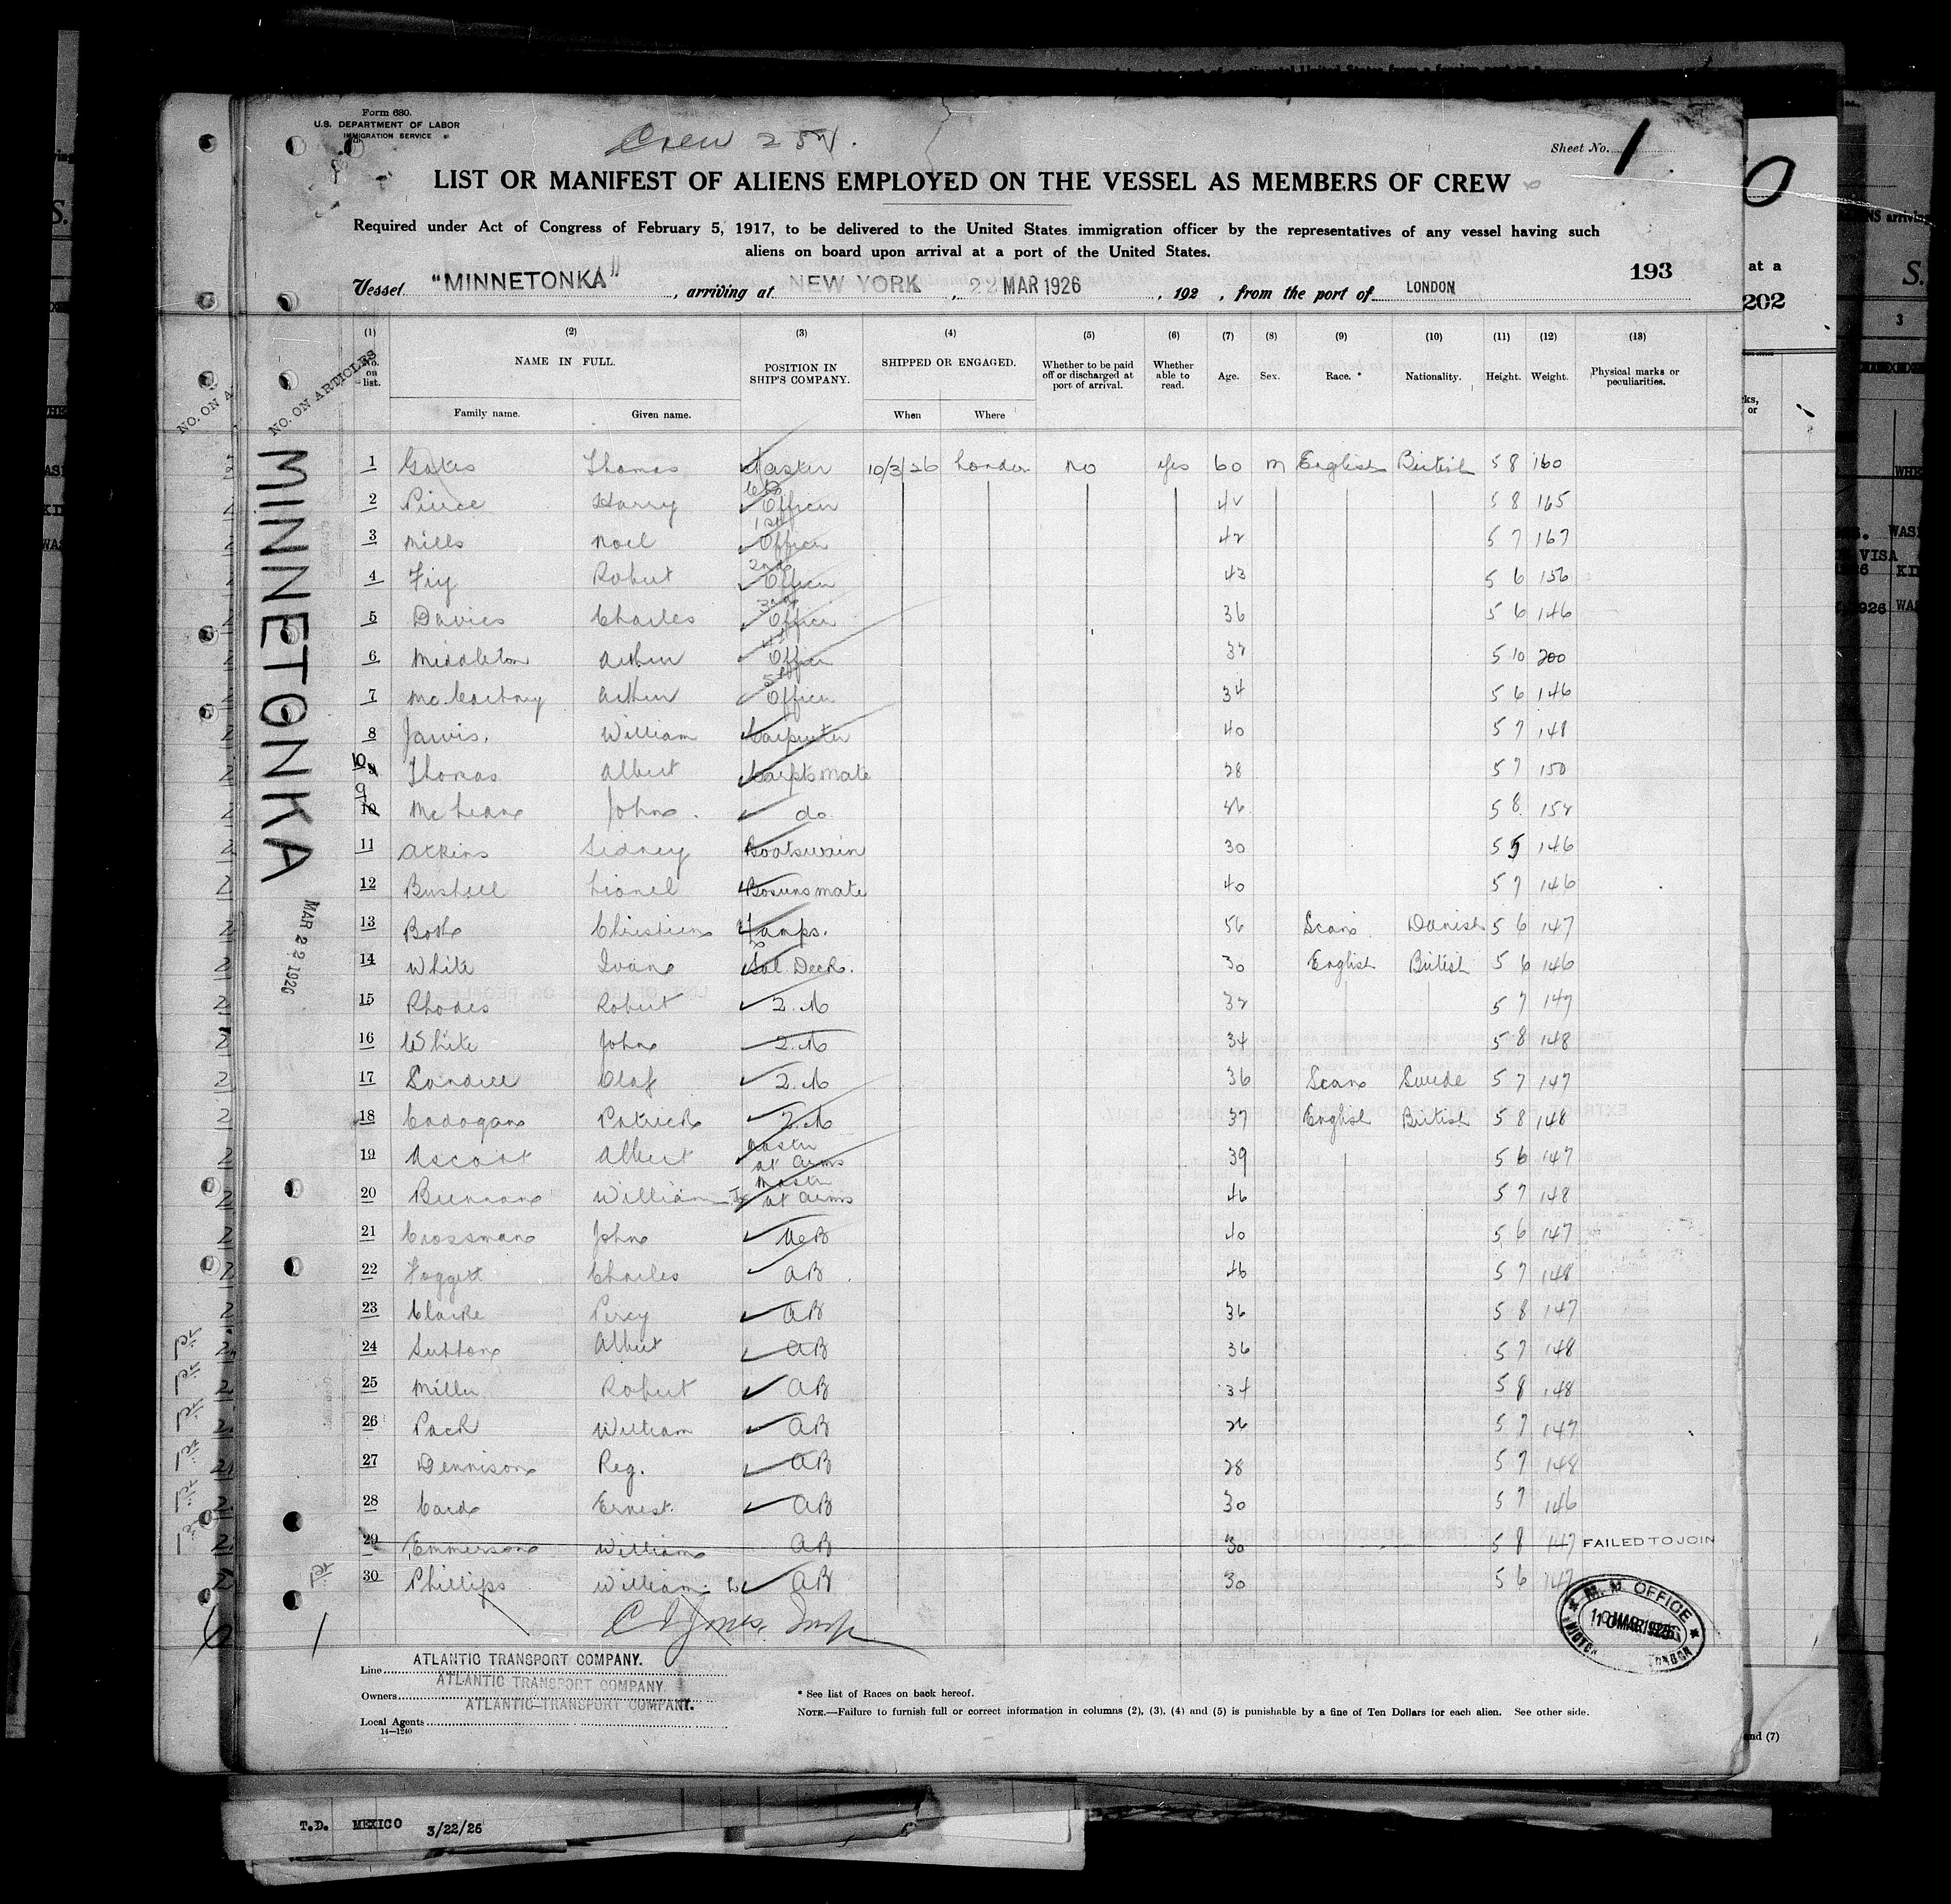 Form 680.
U.S. DEPARTMENT OF LABOR
IMMIGRATION SERVICE
Crew
Sheet No. 1
LIST OR MANIFEST OF ALIENS EMPLOYED ON THE VESSEL AS MEMBERS OF CREW
Required under Act of Congress of February 5, 1917, to be delivered to the United States immigration officer by the representatives of any vessel having such
aliens on board upon arrival at a port of the United States.
193
Vessel "MINNETONKA", arriving at NEW YORK, 22 MAR 1926, 192 , from the port of LONDON
(1) (2) (3) (4) (5) (6) (7) (8) (9) (10) (11) (12) (13)
NO. ON ARTICLES
No. on list. NAME IN FULL. POSITION IN SHIP'S COMPANY. SHIPPED OR ENGAGED. Whether to be paid off or discharged at port of arrival. Whether able to read. Age. Sex. Race. * Nationality. Height. Weight. Physical marks or peculiarities.
Family name. Given name. When Where
1 Gates Thomas Master 10/3/26 London no yes 60 m English British 5 8 160
2 Pierce Harry Officer 42 5 8 165
3 Mills Noel 1st Officer 42 5 7 167
4 Robert 2nd Officer 43 5 6 156
5 Davies Charles 3rd Officer 36 5 6 146
6 Middleton Arthur 4th Officer 37 5 10 200
7 McCartney Arthur 5th Officer 34 5 6 146
8 Jarvis. William Carpenter 40 5 7 148
10 Thomas Albert Carpts mate 28 5 7 150
9 McLean John. do 46 5 8 154
11 Atkins Sidney Boatswain 30 5 5 146
12 Bushell Lionel Bosuns mate 40 5 7 146
13 Christian Lamps. 56 Scan Danish 5 6 147
14 White Ivan 30 English British 5 6 146
15 Rhodes Robert Q.M 32 5 7 147
16 White John Q.M 34 5 8 148
17 Olaf Q.M 36 Scan Swede 5 7 147
18 Cadogan Patrick Q.M 37 English British 5 8 148
19 Ascott Albert Master at arms 39 5 6 147
20 Brennan William Master at arms 46 5 7 148
21 Crossman John AB 40 5 6 147
22 Foggett Charles AB 46 5 7 148
23 Clarke Percy AB 36 5 8 147
24 Sutton Albert AB 36 5 7 148
25 Miller Robert AB 34 5 8 148
26 Pack William AB 26 5 7 147
27 Dennison Reg. AB 28 5 7 148
28 Card Ernest. AB 30 5 7 146
29 Emmerson William AB 30 5 8 147 FAILED TO JOIN
30 Phillips William AB 30 5 6 147
MINNETONKA
MAR 22 1926
M. M. OFFICE
Line ATLANTIC TRANSPORT COMPANY.
Owners ATLANTIC TRANSPORT COMPANY.
Local Agents ATLANTIC TRANSPORT COMPANY.
14—1240
* See list of Races on back hereof.
NOTE.—Failure to furnish full or correct information in columns (2), (3), (4) and (5) is punishable by a fine of Ten Dollars for each alien. See other side.
at a
202
and (7)
T.D. MEXICO 3/22/26